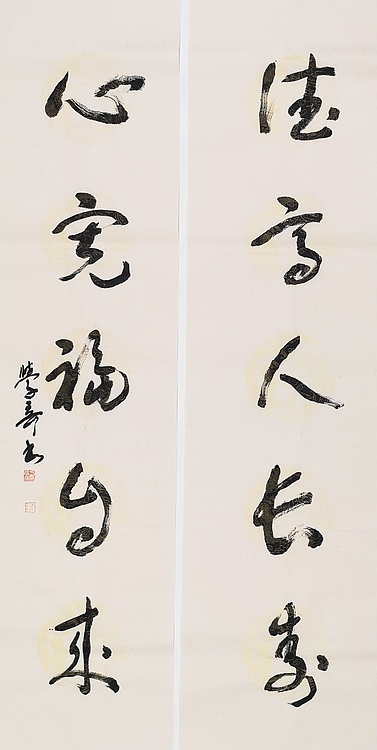 德高人长寿
心宽福自来
学奇书